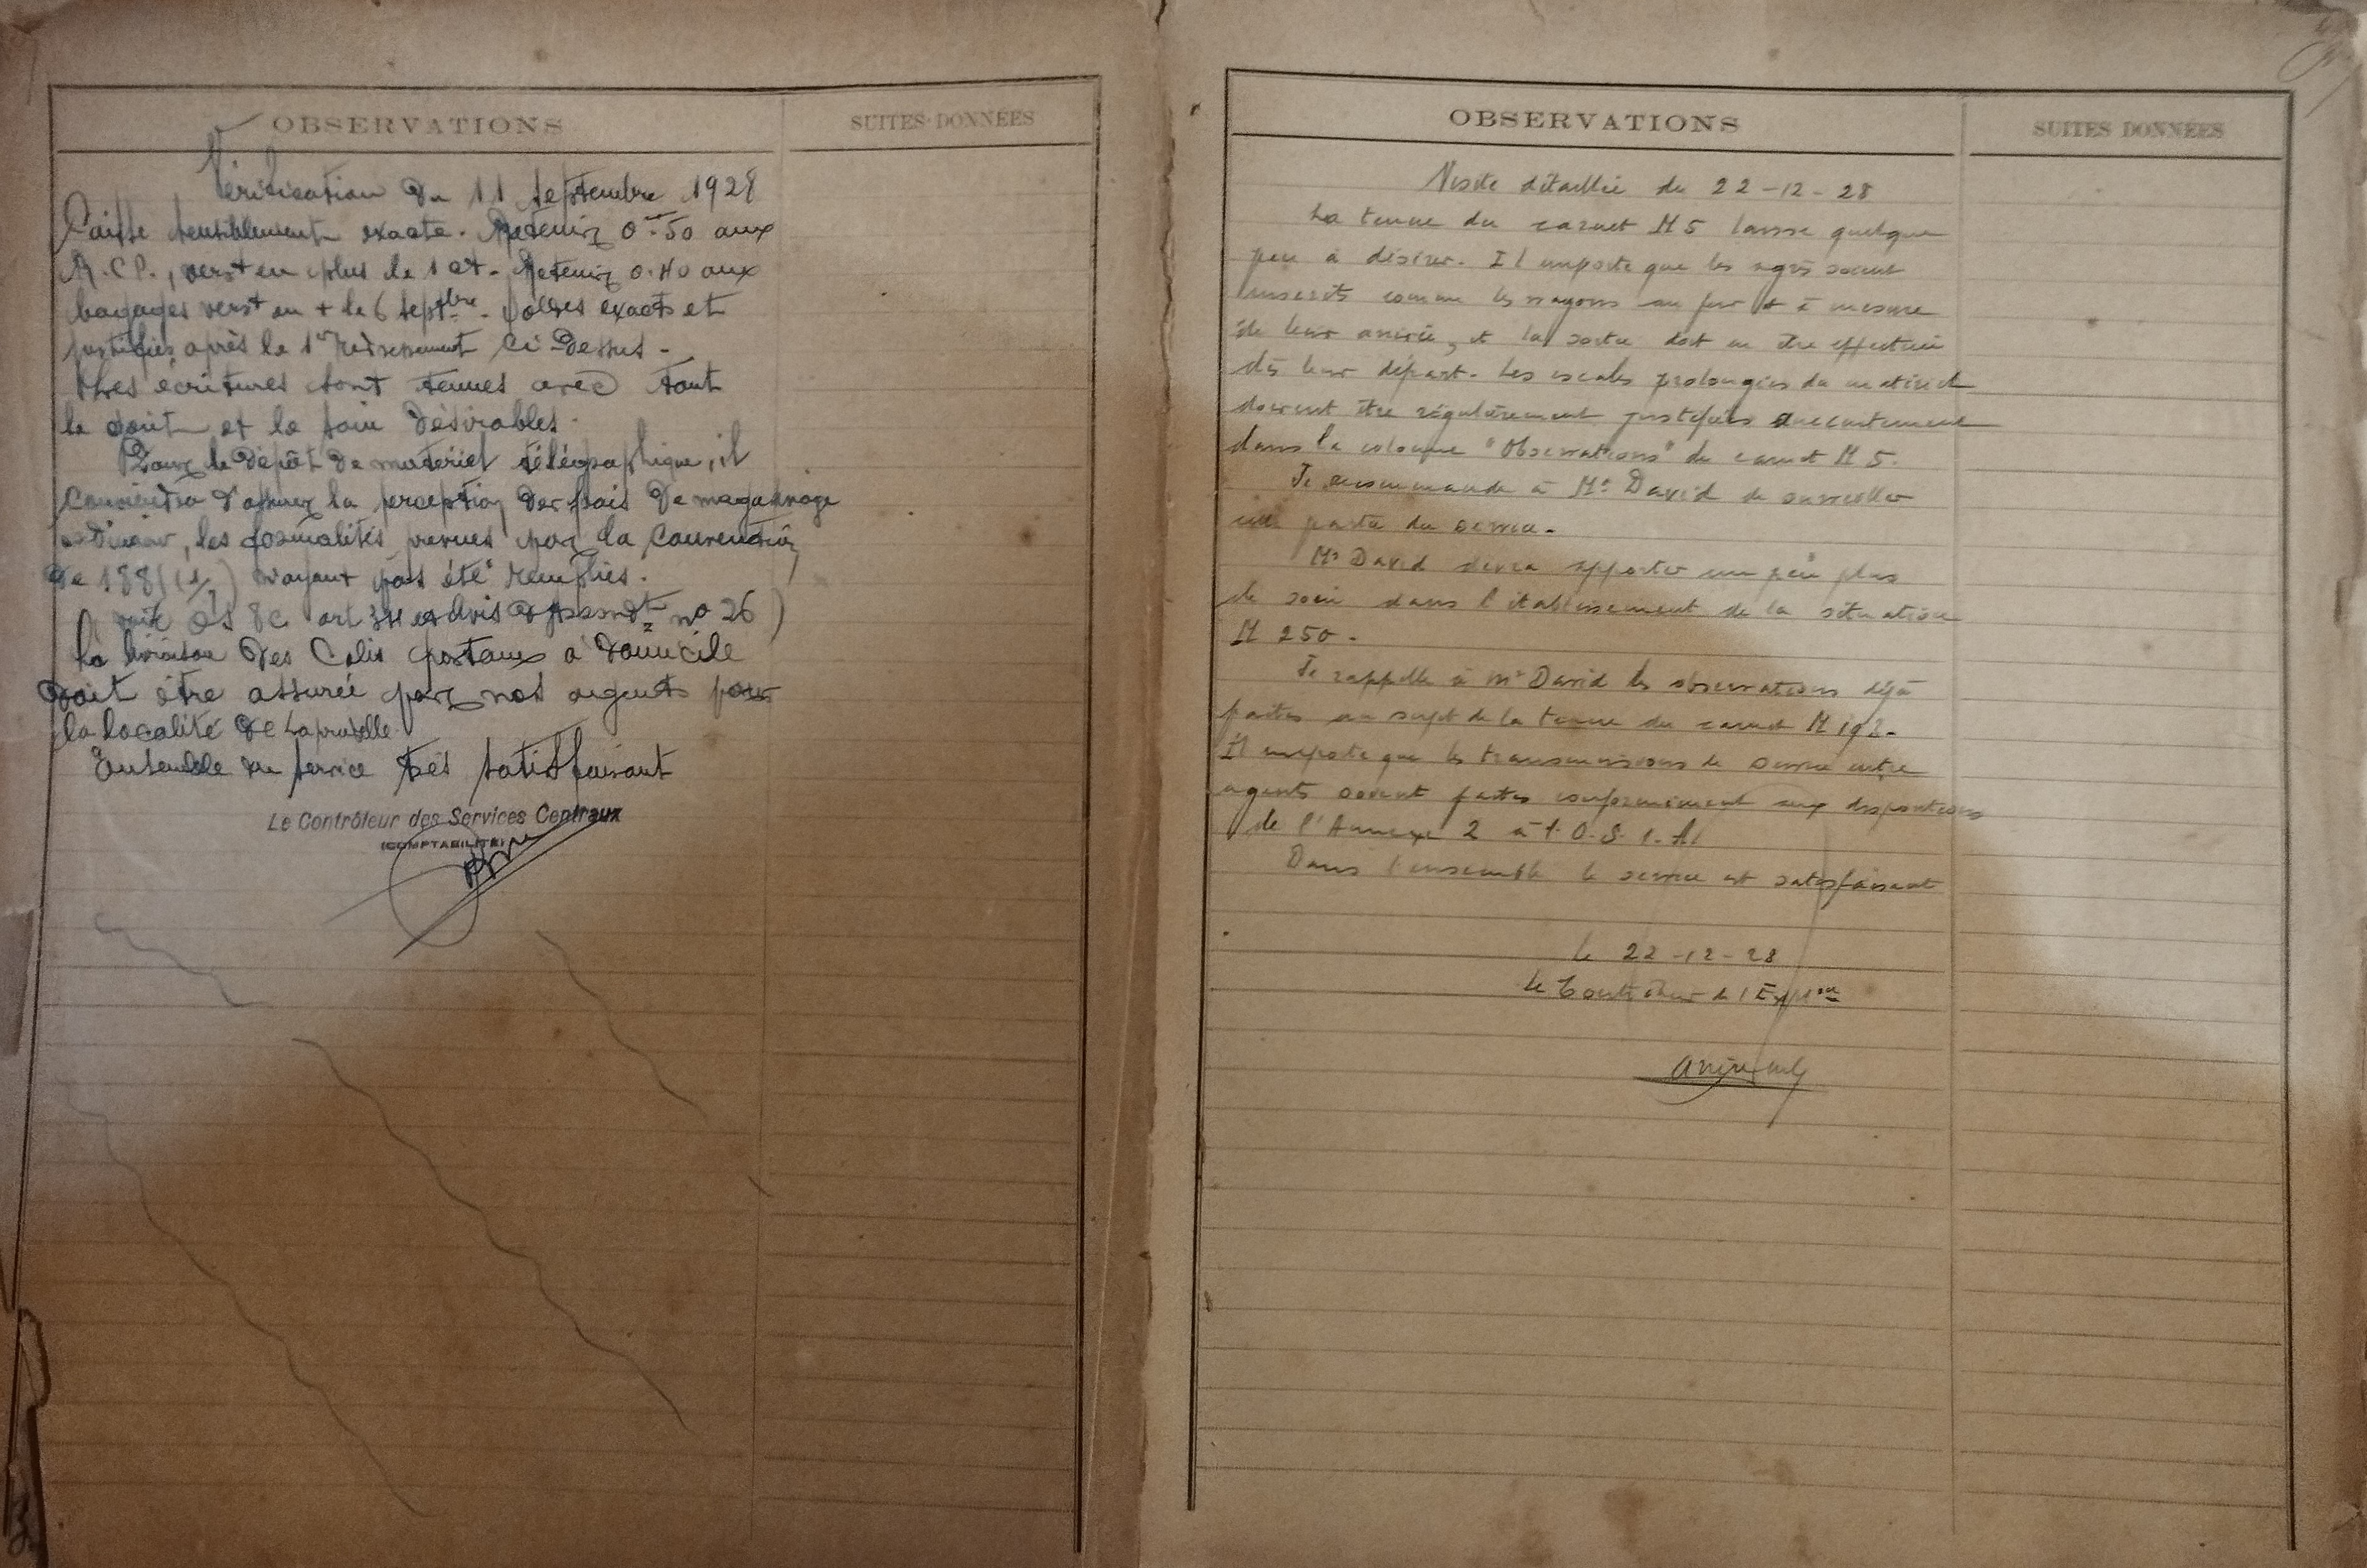 OBSERVATIONS
SUITES DONNÉES
Vérification du 11 Septembre 1928
Caisse sensiblement exacte. Retenir 0.50 aux
verst en plus le 1er. Retenir 0.40 aux
bagages verst en + le 6 septbre. Soldes exacts et
justifiés après le 1er redressement ci-dessus -
Les écritures sont tenues avec tout
le et le soin désirables.
Pour le dépôt de matériel télégraphique, il
conviendra d'assurer la perception des frais de magasinage
les formalités prévues par la Convention
de 188 n'ayant pas été remplies.
art et avis no 26)
La livraison des Colis postaux à domicile
doit être assurée par nos agents pour
la localité de Laprugne
Ensemble du service très satisfaisant
Le Contrôleur des Services Centraux
(COMPTABILITÉ)
OBSERVATIONS
SUITES DONNÉES
Visite détaillée du 22-12-28
La tenue du carnet M 5 laisse quelque
peu à désirer. Il importe que les agrès soient
inscrits comme les wagons au fur & à mesure
de leur arrivée, et la sortie doit en être effectuée
dès leur départ. Les escales prolongées du matériel
doivent être régulièrement justifiées
dans la colonne "Observations" du carnet M 5.
Je recommande à Mr David de surveiller
partie du service.
Mr David devra apporter un peu plus
de soin dans l'établissement de la situation
M 250.
Je rappelle à Mr David les observations déjà
faites au sujet de la tenue du carnet M
Il importe que les transmissions de service entre
agents soient faites conformément aux dispositions
de l'Annexe 2 à l'O.S.
Dans l'ensemble le service est satisfaisant
le 22-12-28
Le Contrôleur de l'Exploon